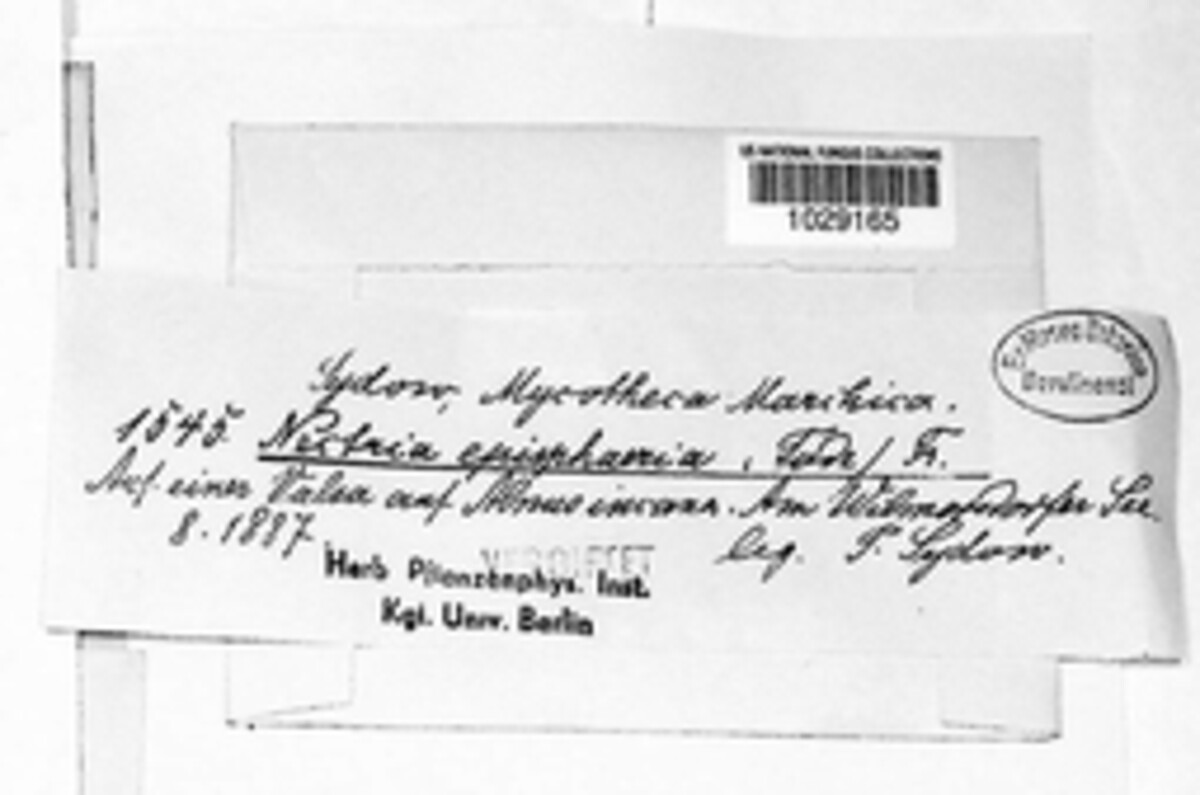 US NATIONAL FUNGUS COLLECTIONS
1029165
Sydow, Mycotheca Marchica.
1545. Nectria episphaeria (Tode) Fr.
Auf einer Valsa auf Alnus incana. Am Wilmersdorfer See.
8. 1887. leg. P. Sydow.
Herb Pflanzenphys. Inst.
Kgl. Univ. Berlin